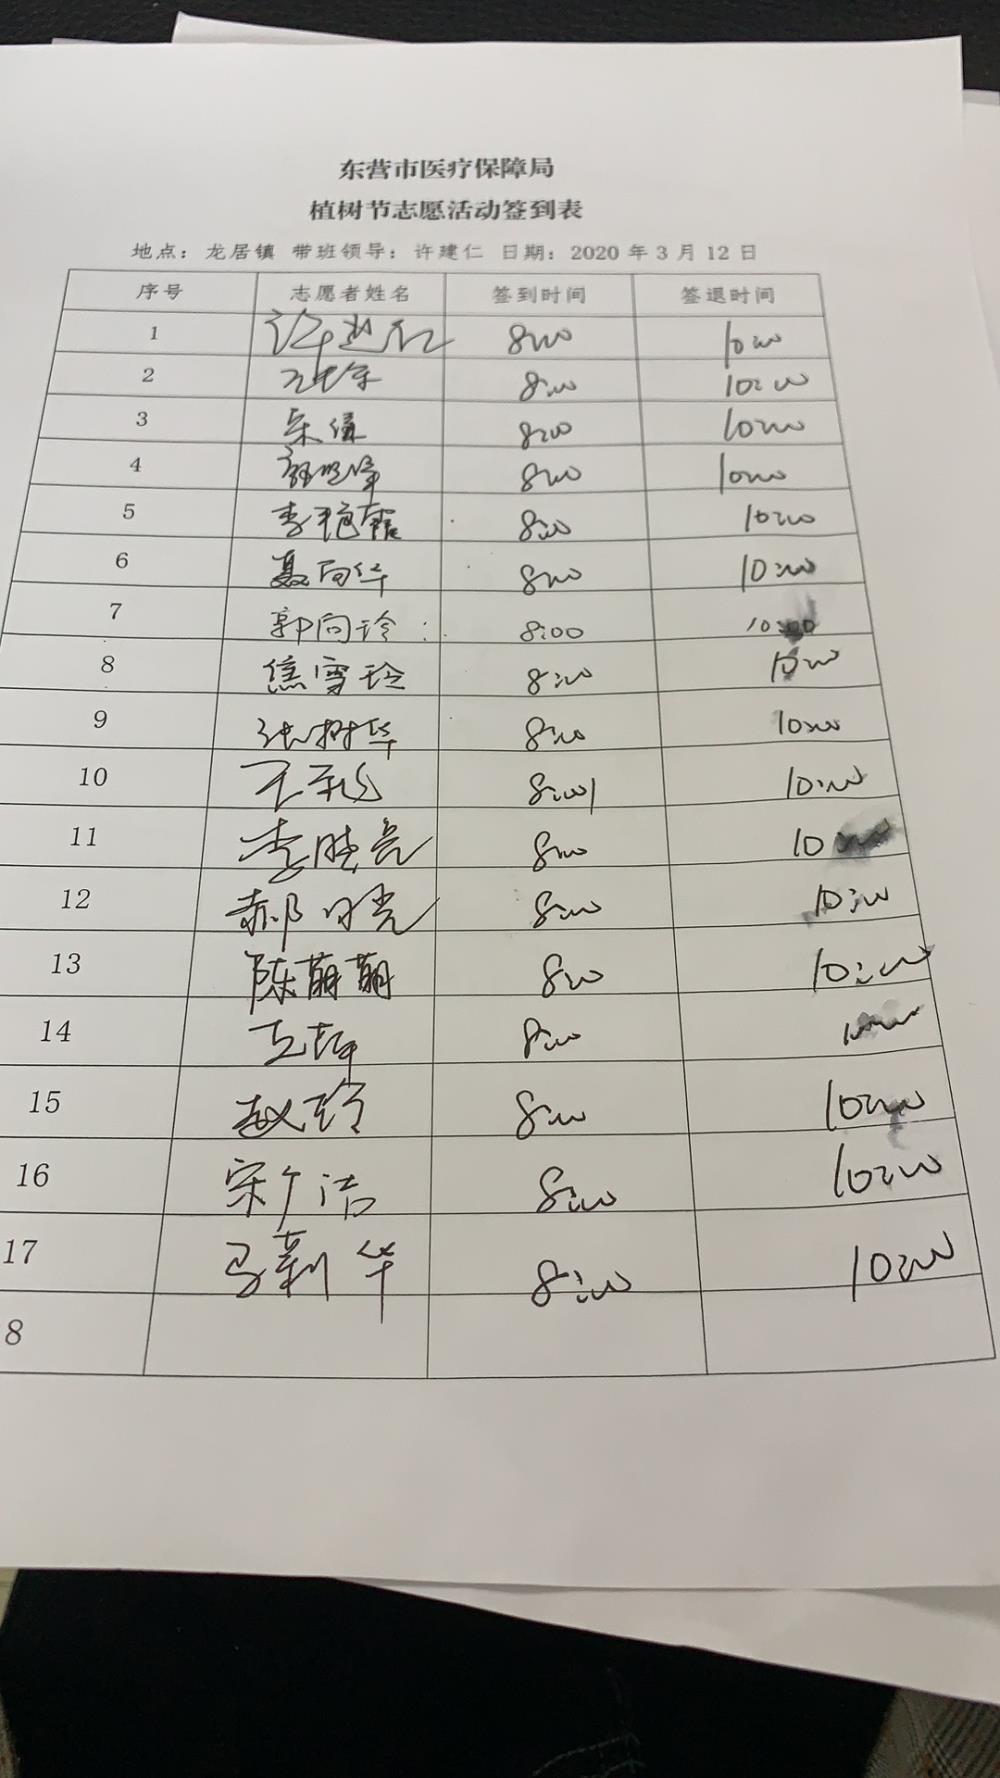 东营市医疗保障局
植树节志愿活动签到表
地点：龙居镇 带班领导：许建仁 日期：2020 年 3 月 12 日
序号 志愿者姓名 签到时间 签退时间
1 许建仁 8:00 10:00
2 8:00 10:00
3 8:00 10:00
4 8:00 10:00
5 李艳霞 8:00 10:00
6 聂向华 8:00 10:00
7 郭向玲 8:00 10:00
8 焦雪玲 8:00 10:00
9 张树华 8:00 10:00
10 8:00 10:00
11 李胜亮 8:00 10
12 郝日光 8:00 10:00
13 陈萌萌 8:00 10:00
14 8:00
15 赵玲 8:00 10:00
16 宋广洁 8:00 10:00
17 马莉华 8:00 10:00
8